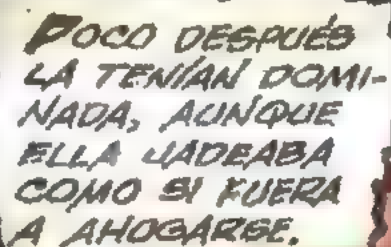 POCO DESPUÉS
LA TENÍAN DOMI-
NADA, AUNQUE
ELLA JADEABA
COMO SI FUERA
A AHOGARSE